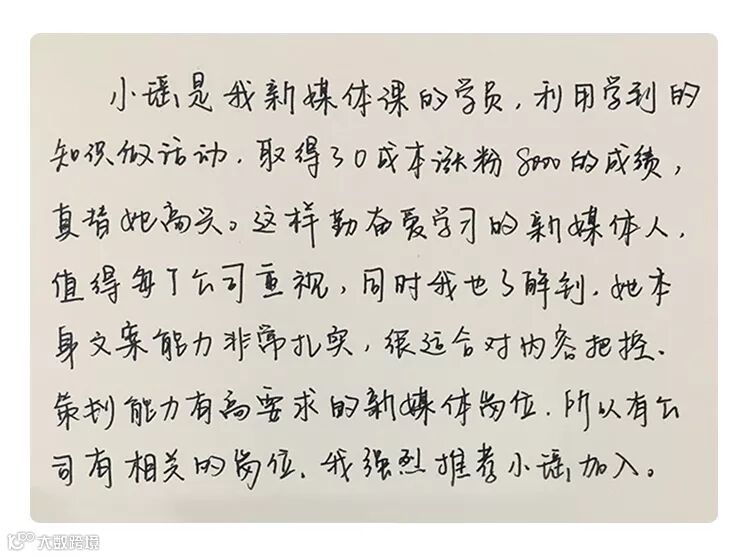 小瑶是我新媒体课的学员，利用学到的
知识做活动，取得了0成本涨粉8000的成绩，
真替她高兴。这样勤奋爱学习的新媒体人，
值得每个公司重视，同时我也了解到，她本
身文案能力非常扎实，很适合对内容把控、
策划能力有高要求的新媒体岗位，所以有公
司有相关的岗位，我强烈推荐小瑶加入。
大数跨境